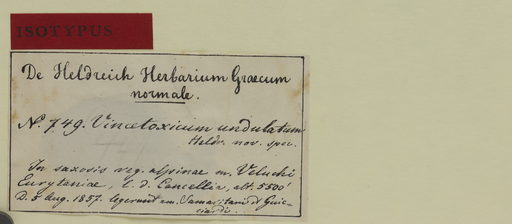 ISOTYPUS
De Heldreich Herbarium Graecum
normale.
N. 749. Vincetoxicum undulatum
Heldr. nov. spec.
In saxosis reg. alpinae m. Veluchi
Eurytaniae, l. d. Cancellia, alt. 5500'
D. 5 Aug. 1857. legerunt em. Samaritani et Guic-
ciardi.